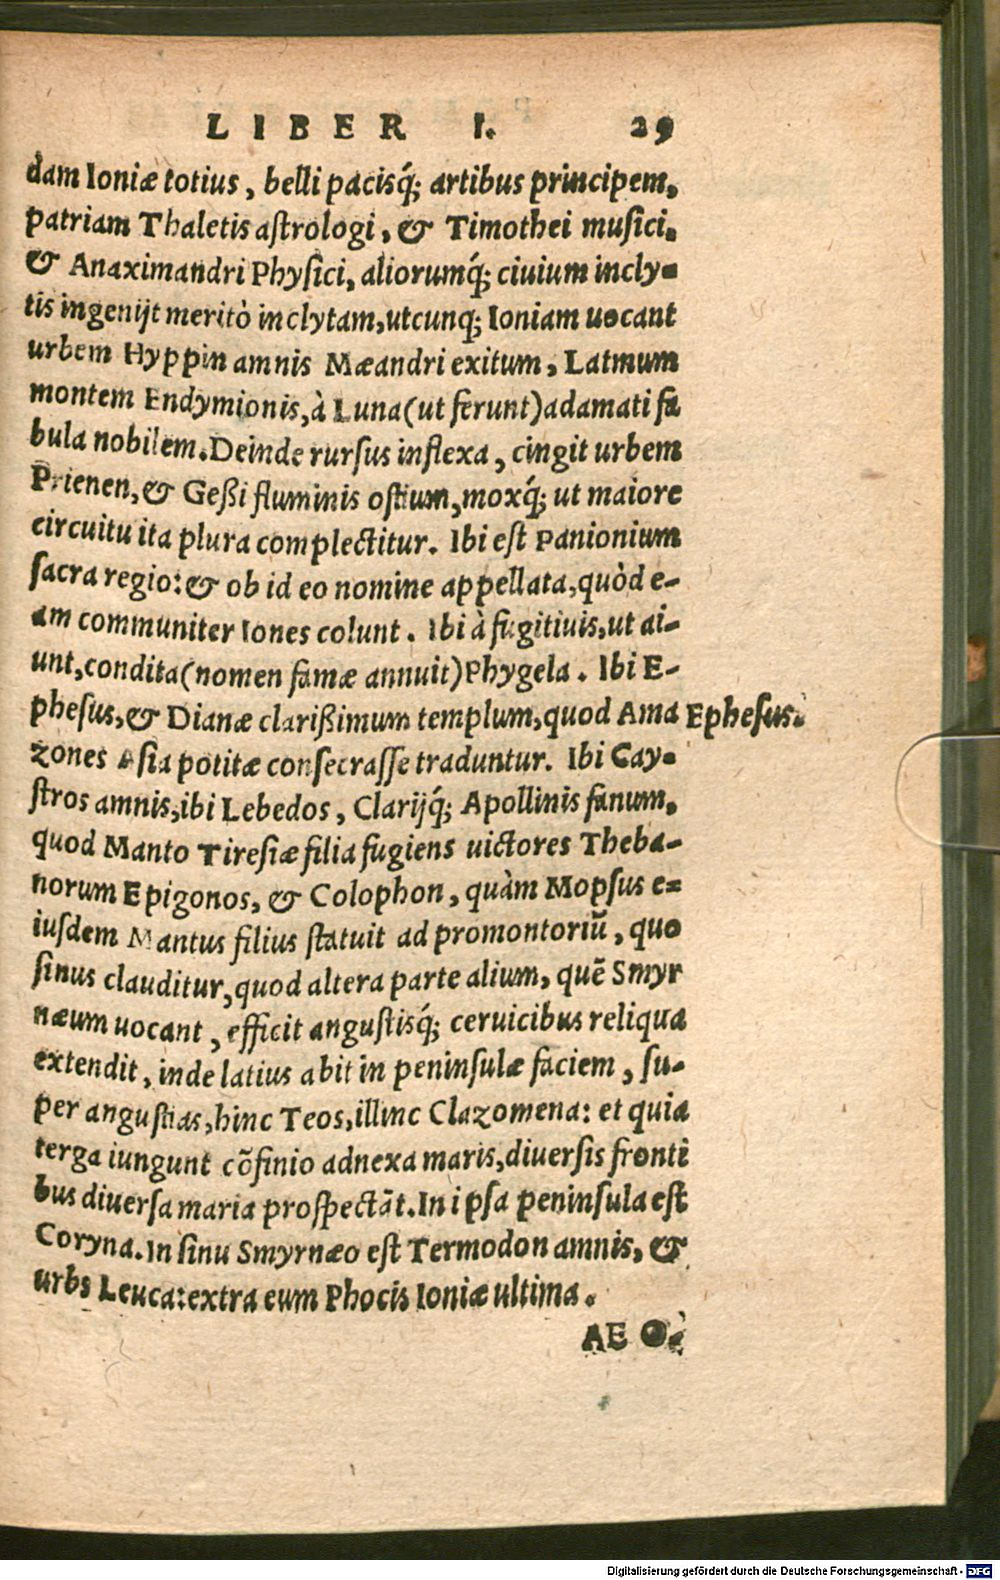 LIBER I. 29
dam Ioniæ totius, belli pacisq́; artibus principem,
patriam Thaletis astrologi, & Timothei musici.
& Anaximandri Physici, aliorumq́; ciuium incly-
tis ingenijt meritò inclytam, utcunq; Ioniam uocant
urbem Hyppin amnis Mæandri exitum, Latmum
montem Endymionis, à Luna (ut ferunt) adamati fa
bula nobilem. Deinde rursus inflexa, cingit urbem
Prienen, & Geßi fluminis ostium, moxq́; ut maiore
circuitu ita plura complectitur. Ibi est Panionium
sacra regio: & ob id eo nomine appellata, quòd e-
am communiter Iones colunt. Ibi à fugitiuis, ut ai-
unt, condita (nomen famæ annuit) Phygela. Ibi E-
phesus, & Dianæ clarißimum templum, quod Ama
Ephesus.
zones Asia potitæ consecrasse traduntur. Ibi Cay-
stros amnis, ibi Lebedos, Clarijq́; Apollinis fanum,
quod Manto Tiresiæ filia fugiens uictores Theba-
norum Epigonos, & Colophon, quàm Mopsus e-
iusdem Mantus filius statuit ad promontoriū, quo
sinus clauditur, quod altera parte alium, quē Smyr
næum uocant, efficit angustisq́; ceruicibus reliqua
extendit, inde latius abit in peninsulæ faciem, su-
per angustias, hinc Teos, illinc Clazomena: et quia
terga iungunt cõfinio adnexa maris, diuersis fronti
bus diuersa maria prospectãt. In ipsa peninsula est
Coryna. In sinu Smyrnæo est Termodon amnis, &
urbs Leuca: extra eum Phocis Ioniæ ultima.
AEO.
Digitalisierung gefördert durch die Deutsche Forschungsgemeinschaft - DFG